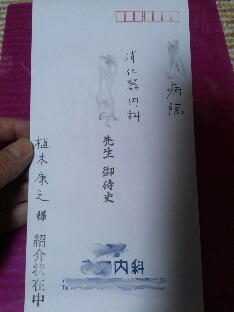 病院
消化器内科
先生 御侍史
植木康之 様 紹介状在中
内科